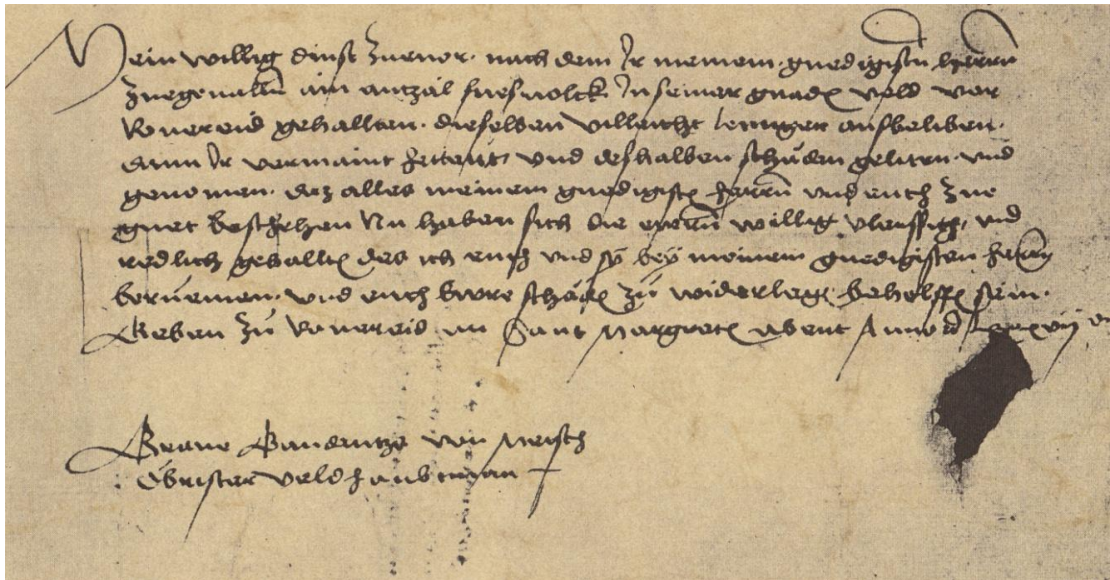 Mein willig dinst zuevor. nach dem Ir meinem gnedigisten herrn
zuegevallen ain anzal fuesvolck In seiner gnaden veld vor
Rovereid gehallten. dieselben villeicht lennger ausbeliben.
dann Ir vermaint hettent, und deshalben schaden geliten und
genomen. daz alles meinem gnedigisten herrn und euch zue
guet beschehen Nu haben sich die ewrn willig vleissig, und
redlich gehallten des ich euch und sy bey meinem gnedigisten herrn
beruemen. und euch Ewre schäden zu widerlegen behelffen sein.
Geben zu Rovereid an Sant Margreten abent Anno d lxxxvij
Grave Gaudentze von Metsch
Obrister veldhaubtman